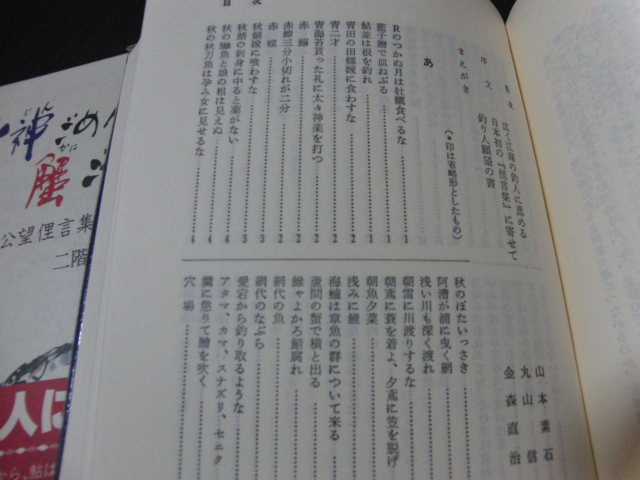 目次
広く江湖の釣人に薦める
山本素石
序文
日本初の『俚言集』に寄せて
丸山信
釣り人願望の書
金森直治
まえがき
(*印は省略形としたもの)
あ
Rのつかぬ月は牡蠣食べるな……1
藍子膾で皿ねぶる……1
鮎並は根を釣れ……1
青田の田螺嫁に食わすな……2
青二才……2
青海苔貰った礼に太々神楽を打つ……2
赤鰯……2
赤鯉三分小切れが二分……2
赤蝮……3
秋鯖嫁に喰わすな……3
秋鯖の刺身に中ると薬がない……4
秋の鰯魚と娘の粗は見えぬ……4
秋の秋刀魚は孕み女に見せるな……4
秋のぼたいっさき
阿漕が浦に曳く網
浅い川も深く渡れ
朝雷に川渡りするな
朝鳶に蓑を着よ、夕鳶に笠を脱げ
朝魚夕菜
浅みに鯉
海鱸は章魚の群について来る
蘆間の蟹で横と出る
鯵ゃよかろ鯖腐れ
網代の魚
網代のなぶら
愛宕から釣り取るような
アタマ、カマ、スナズリ、セニク
羹に懲りて膾を吹く
穴場
目次
神
蟹
かに
公望俚言集
二階
人に
から、鮎は